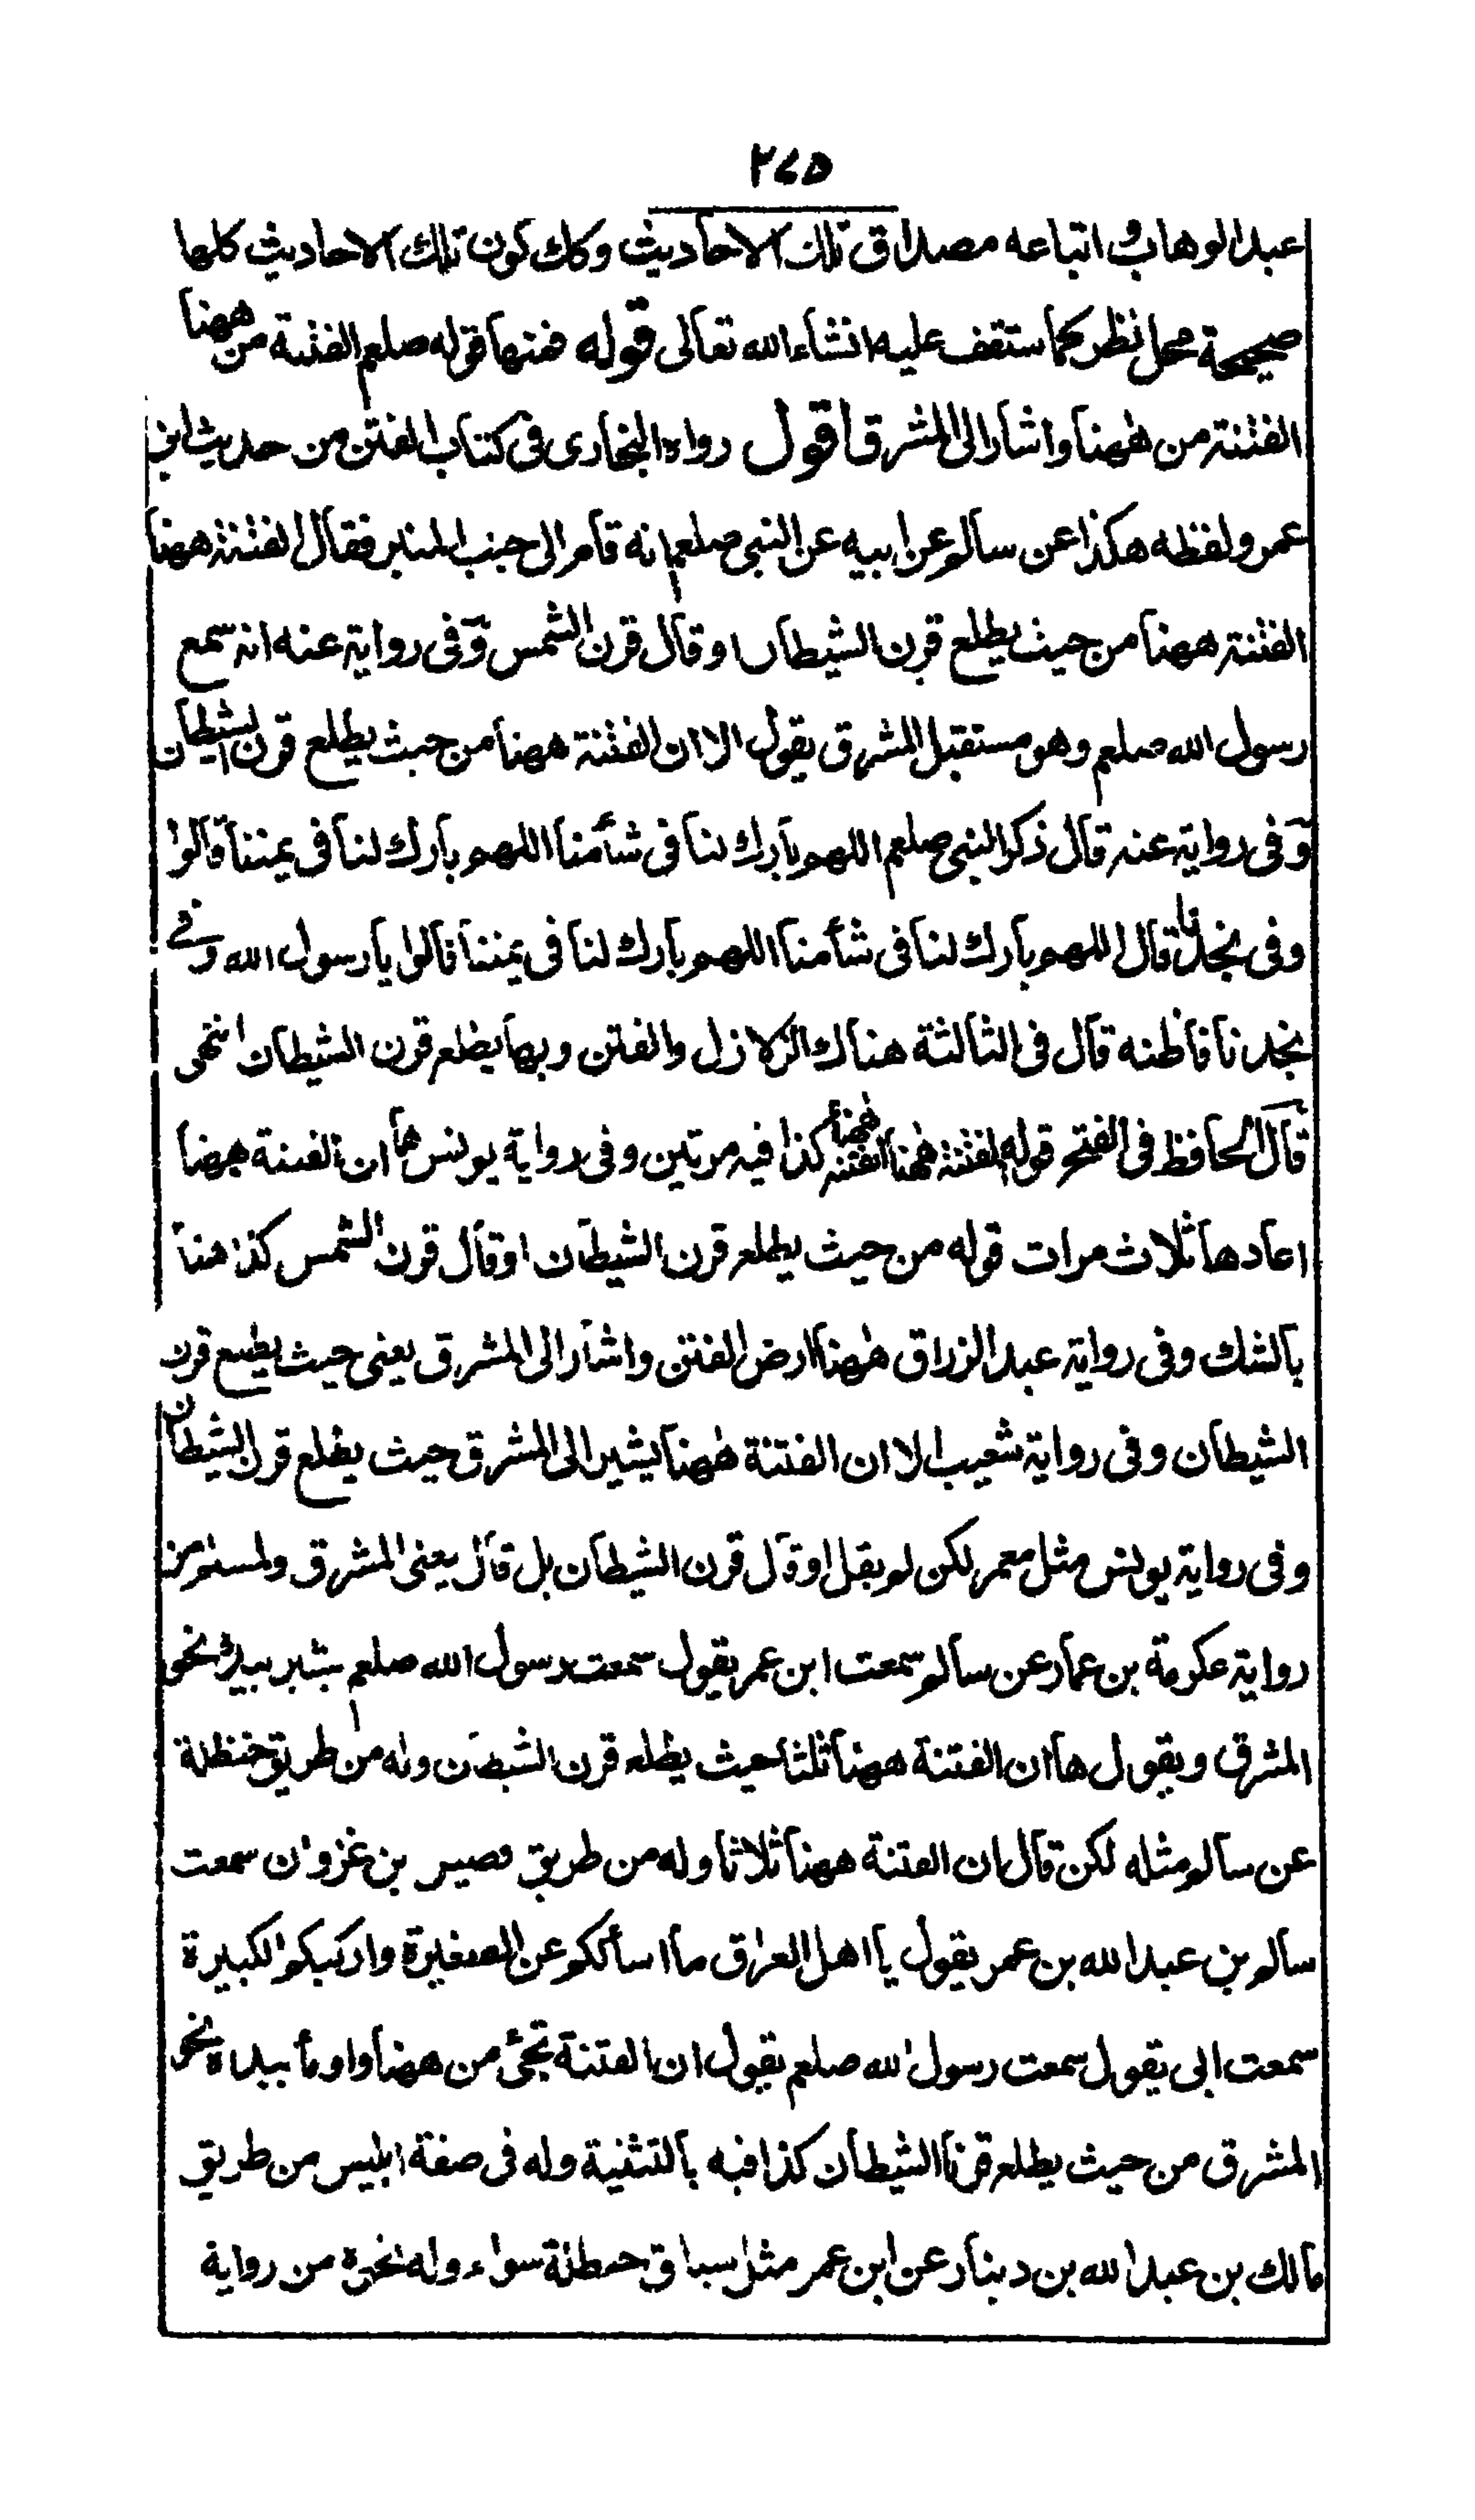 ٢٧٥
عبد الوهاب واتباعه مصداق تلك الاحاديث وكك كون تلك الاحاديث كلها
صحيحة محل نظر كما ستقف عليه انشاء الله تعالى قوله فمنها قوله صلعم الفتنة من ههنا
الفتنة من ههنا واشار الى المشرق اقول رواه البخارى فى كتاب الفتن من حديث ابن
عمر ولفظه هكذا عن سالم عن ابيه عن النبى صلعم انه قام الى جنب المنبر فقال الفتنة ههنا
الفتنة ههنا من حيث يطلع قرن الشيطان او قال قرن الشمس وفى رواية عنه انه سمع
رسول الله صلعم وهو مستقبل المشرق يقول الا ان الفتنة ههنا من حيث يطلع قرن الشيطان
وفى رواية عنه قال ذكر النبى صلعم اللهم بارك لنا فى شأمنا اللهم بارك لنا فى يمننا قالوا
وفى نجدنا قال اللهم بارك لنا فى شأمنا اللهم بارك لنا فى يمننا قالوا يا رسول الله وفى
نجدنا فاظنه قال فى الثالثة هناك الزلازل والفتن وبها يطلع قرن الشيطان انتهى
قال الحافظ فى الفتح قوله الفتنة ههنا الفتنة ههنا كذا فيه مرتين وفى رواية يونس ها ان الفتنة ههنا
اعادها ثلاث مرات قوله من حيث يطلع قرن الشيطان او قال قرن الشمس كذا هنا
بالشك وفى رواية عبد الرزاق ههنا ارض الفتن واشار الى المشرق يعنى حيث يطلع قرن
الشيطان وفى رواية شعيب الا ان الفتنة ههنا يشير الى المشرق حيث يطلع قرن الشيطان
وفى رواية يونس مثل معمر لكن لم يقل او قال قرن الشيطان بل قال يعنى المشرق ولمسلم من
رواية عكرمة بن عمار عن سالم سمعت ابن عمر يقول سمعت رسول الله صلعم يشير بيده نحو
المشرق ويقول ها ان الفتنة ههنا ثلثا حيث يطلع قرن الشيطان وله من طريق حنظلة
عن سالم مثله لكن قال ان الفتنة ههنا ثلاثا وله من طريق فصير بن غزوان سمعت
سالم بن عبد الله بن عمر يقول يا اهل العراق ما اسألكم عن الصغيرة واركبكم الكبيرة
سمعت ابى يقول سمعت رسول الله صلعم يقول ان الفتنة تجئ من ههنا واومأ بيده نحو
المشرق من حيث يطلع قرنا الشيطان كذا فيه بالتثنية وله فى صفة ابليس من طريق
مالك بن عبد الله بن دينار عن ابن عمر مثل سياق حنظلة سواء وله نحوه من رواية